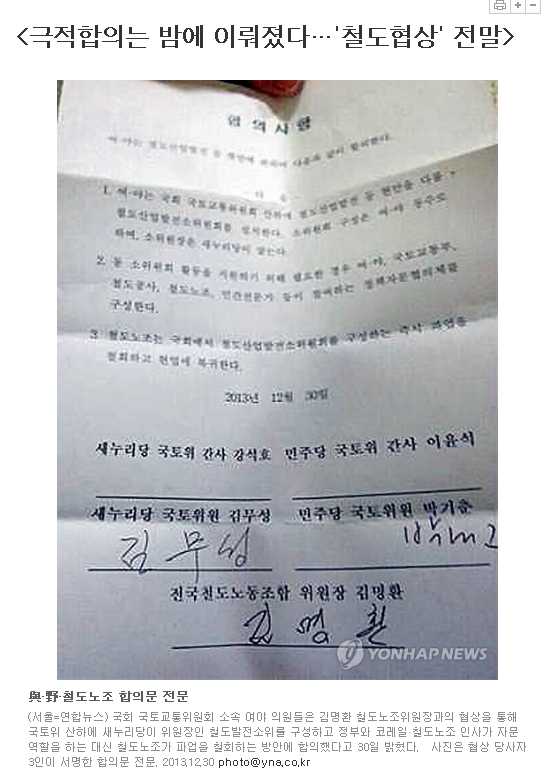 <극적합의는 밤에 이뤄졌다…'철도협상' 전말>
합의사항
여·야는 철도산업발전 등 현안에 관하여 다음과 같이 합의한다.
- 다 음 -
1. 여·야는 국회 국토교통위원회 산하에 철도산업발전 등 현안을 다룰
철도산업발전소위원회를 설치한다. 소위원회 구성은 여·야 동수로
하며, 소위원장은 새누리당이 맡는다.
2. 동 소위원회 활동을 지원하기 위해 필요한 경우 여·야, 국토교통부,
철도공사, 철도노조, 민간전문가 등이 참여하는 정책자문협의체를
구성한다.
3. 철도노조는 국회에서 철도산업발전소위원회를 구성하는 즉시 파업을
철회하고 현업에 복귀한다.
2013년 12월 30일
새누리당 국토위 간사 강석호 민주당 국토위 간사 이윤석
새누리당 국토위원 김무성 민주당 국토위원 박기춘
김무성
전국철도노동조합 위원장 김명환
김명환
YONHAP NEWS
與·野·철도노조 합의문 전문
(서울=연합뉴스) 국회 국토교통위원회 소속 여야 의원들은 김명환 철도노조위원장과의 협상을 통해
국토위 산하에 새누리당이 위원장인 철도발전소위를 구성하고 정부와 코레일 철도노조 인사가 자문
역할을 하는 대신 철도노조가 파업을 철회하는 방안에 합의했다고 30일 밝혔다. 사진은 협상 당사자
3인이 서명한 합의문 전문. 2013.12.30 photo@yna.co.kr